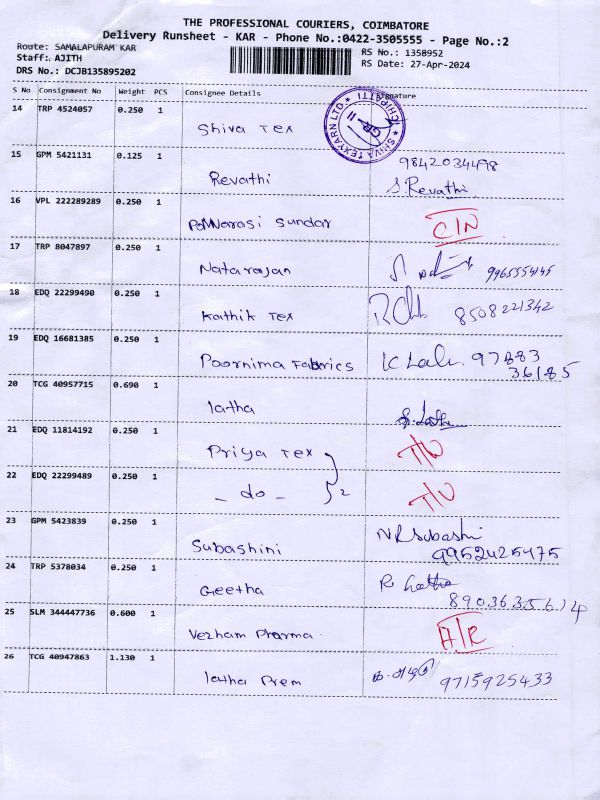 THE PROFESSIONAL COURIERS, COIMBATORE
Delivery Runsheet - KAR - Phone No.:0422-3505555 - Page No.:2
Route: SAMALAPURAM KAR
RS No.: 1358952
Staff: AJITH
RS Date: 27-Apr-2024
DRS No.: DCJB135895202
S No Consignment No Weight PCS Consignee Details Signature
14 TRP 4524057 0.250 1 Shiva Tex
SHIVA TEXYARN LTD
15 GPM 5421131 0.125 1 Revathi 9842034498
S. Revathi
16 VPL 222289289 0.250 1 Ponnarasi Sundar C/N
17 TRP 8047897 0.250 1 Natarajan
18 EDQ 22299490 0.250 1 Kathik Tex 8508221342
19 EDQ 16681385 0.250 1 Poornima Fabrics 97883
36185
20 TCG 40957715 0.690 1 latha
21 EDQ 11814192 0.250 1 Priya Tex T/U
22 EDQ 22299489 0.250 1 - do - } 2 T/U
23 GPM 5423839 0.250 1 Subashini N R Subashi
9952425475
24 TRP 5378034 0.250 1 Geetha
25 SLM 344447736 0.600 1 Vezham Pharma. A/R
26 TCG 40947863 1.130 1 latha Prem 9715925433